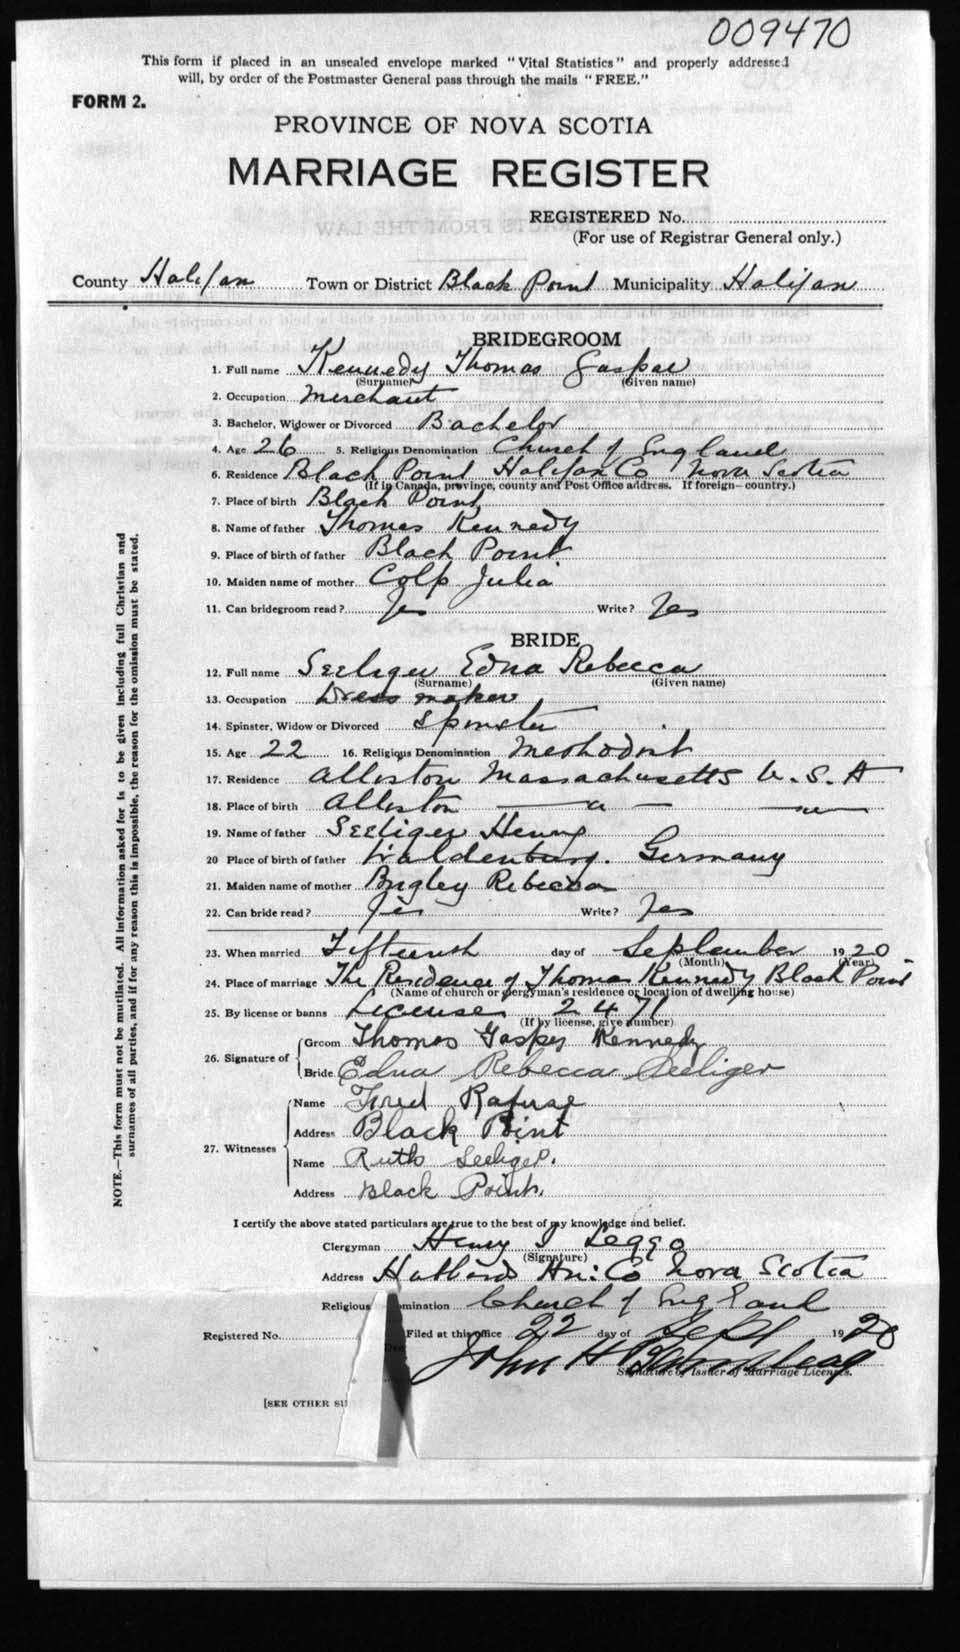 009470
This form if placed in an unsealed envelope marked "Vital Statistics" and properly addressed
will, by order of the Postmaster General pass through the mails "FREE."
FORM 2.
PROVINCE OF NOVA SCOTIA
MARRIAGE REGISTER
REGISTERED No.
(For use of Registrar General only.)
County Halifax Town or District Black Point Municipality Halifax
BRIDEGROOM
1. Full name Kennedy Thomas Gaspar
(Surname) (Given name)
2. Occupation Merchant
3. Bachelor, Widower or Divorced Bachelor
4. Age 26 5. Religious Denomination Church of England
6. Residence Black Point Halifax Co Nova Scotia
(If in Canada, province, county and Post Office address. If foreign—country.)
7. Place of birth Black Point
8. Name of father Thomas Kennedy
9. Place of birth of father Black Point
10. Maiden name of mother Colp Julia
11. Can bridegroom read? Yes Write? Yes
BRIDE
12. Full name Seeliger Edna Rebecca
(Surname) (Given name)
13. Occupation Dress maker
14. Spinster, Widow or Divorced Spinster
15. Age 22 16. Religious Denomination Methodist
17. Residence Allston Massachusetts U. S. A
18. Place of birth Allston — " — "
19. Name of father Seeliger Henry
20 Place of birth of father Waldenburg. Germany
21. Maiden name of mother Bugley Rebecca
22. Can bride read? Yes Write? Yes
23. When married Fifteenth day of September 1920
(Month) (Year)
24. Place of marriage The Residence of Thomas Kennedy Black Point
(Name of church or clergyman's residence or location of dwelling house)
25. By license or banns License 2471
(If by license, give number)
26. Signature of Groom Thomas Gasper Kennedy
Bride Edna Rebecca Seeliger
27. Witnesses Name Fred Rafuse
Address Black Point
Name Ruth Seeliger.
Address Black Point.
I certify the above stated particulars are true to the best of my knowledge and belief.
Clergyman Henry I Leggo
(Signature)
Address Hubbards Hx: Co Nova Scotia
Religious omination Church of England
Registered No. Filed at this office 22 day of Sept 1920
John H Barnstead
Signature of Issuer of Marriage Licenses.
[SEE OTHER SI
NOTE.—This form must not be mutilated. All information asked for is to be given including full Christian and
surnames of all parties, and if for any reason this is impossible, the reason for the omission must be stated.